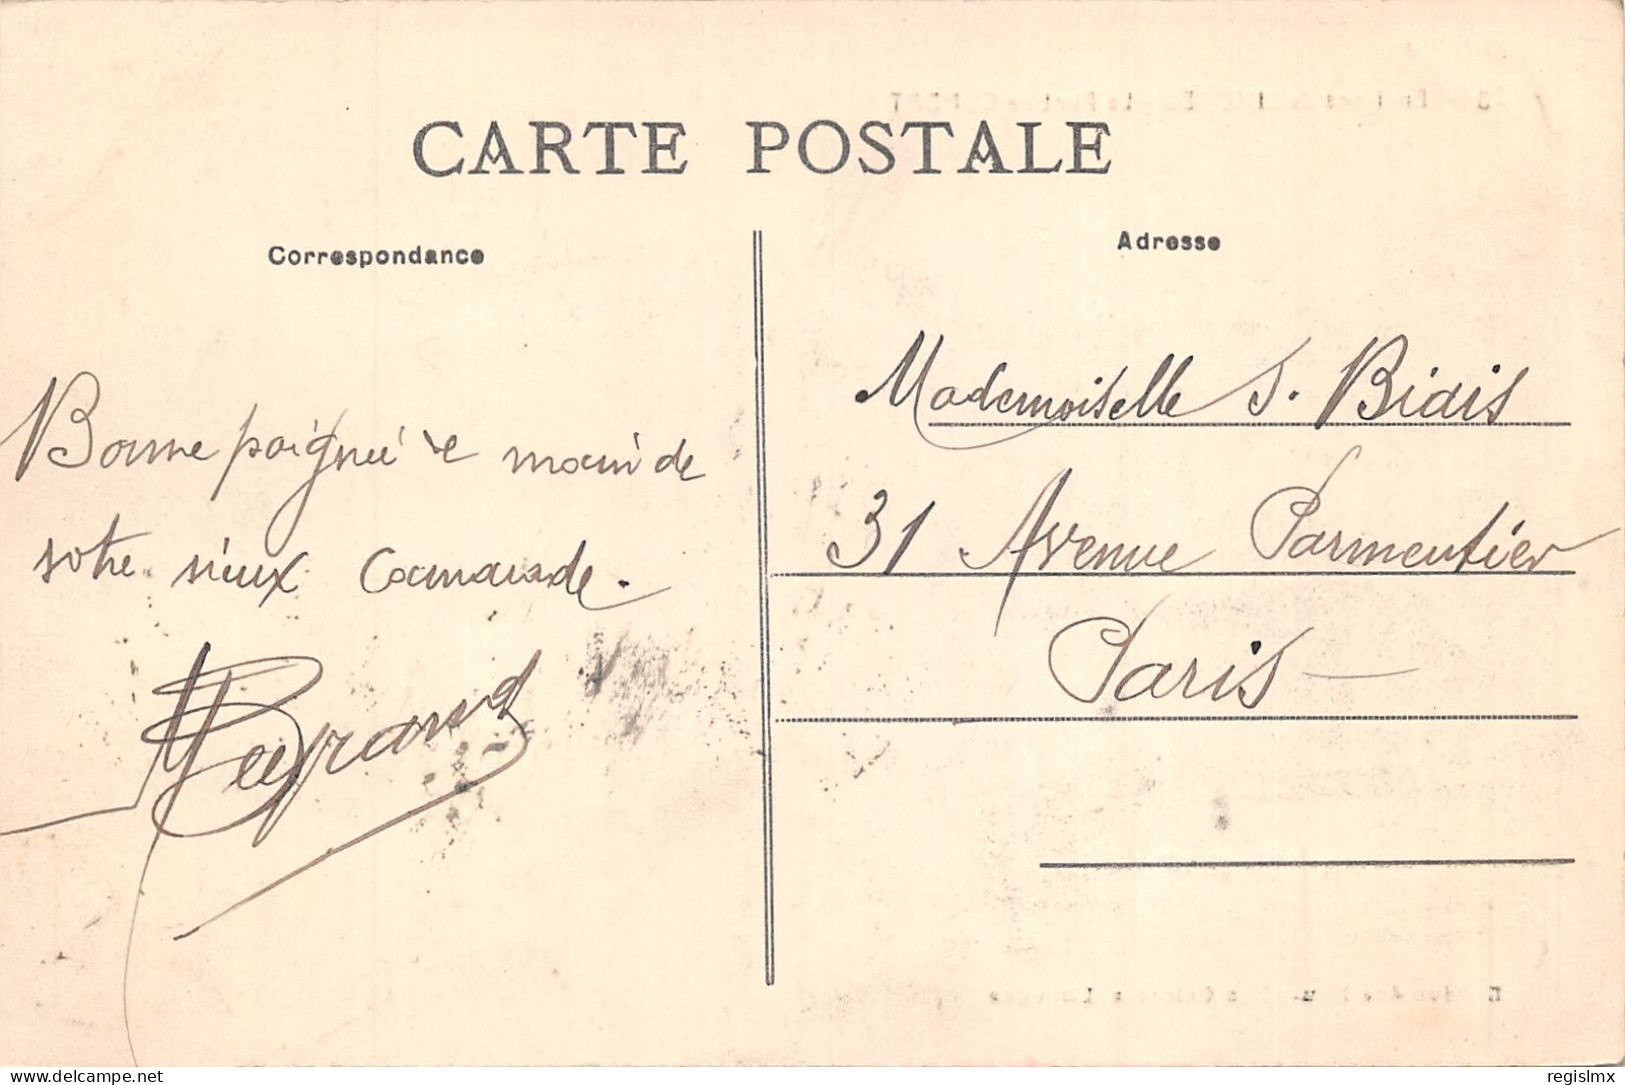 CARTE POSTALE
Correspondance
Adresse
Bonne poignée de main de
votre vieux Camarade.
Mademoiselle S. Biais
31 Avenue Parmentier
Paris
www.delcampe.net
regislmx